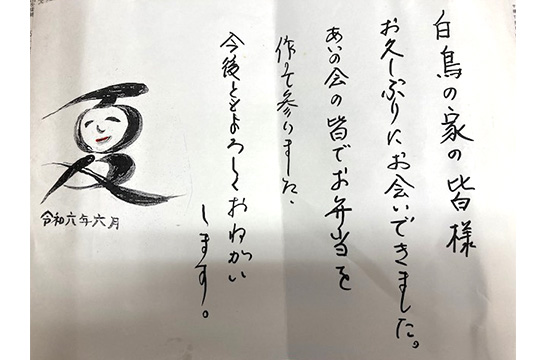 白鳥の家の皆様
お久しぶりにお会いできました。
あいの会の皆でお弁当を
作って参りました、
今後ともよろしくおねがい
します。
夏
令和六年六月